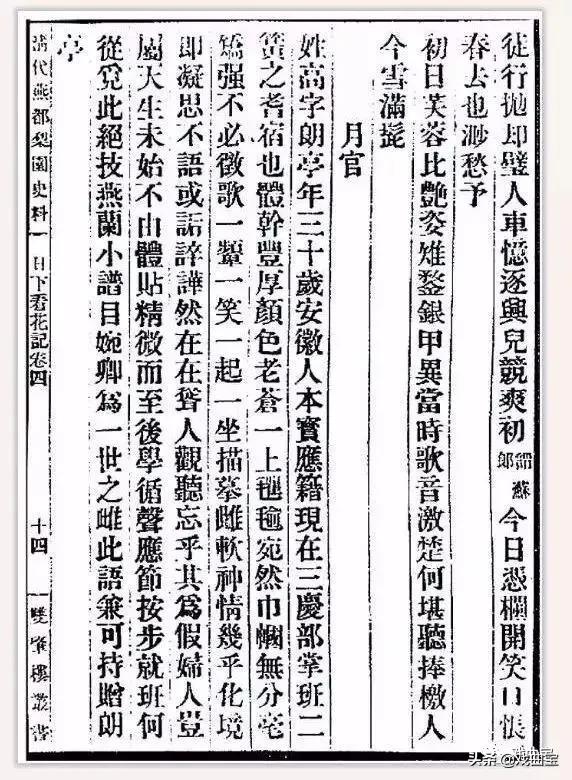 從行拋即璧人車憶逐興兒競爽初韶蘇郎今日憑欄開笑口悵
春去也渺愁予
初日芙蓉比艷姿雉鍪銀甲異當時歌音激楚何堪聽捧檄人
今雪滿髭
月官
姓高字朗亭年三十歲安徽人本寶應籍現在三慶部掌班二
簧之耆宿也體幹豐厚顏色老蒼一上氍毹宛然巾幗無分毫
矯强不必徵歌一顰一笑一起一坐描摹雌軟神情幾乎化境
即凝思不語或詬誶譁然在在聳人觀聽忘乎其為假婦人豈
屬天生未始不由體貼精微而至後學循聲應節按步就班何
從覓此絕技燕蘭小譜目婉卿為一世之雌此語兼可持贈朗
亭
清代燕都梨園史料
日下看花記卷四
十四
雙肇樓叢書
头条@戏曲宝